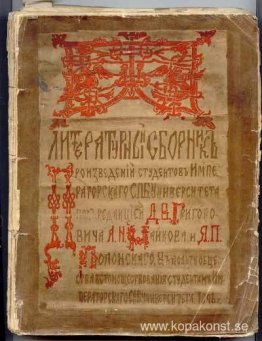 ЛИТЕРАТУРНЫЙ СБОРНИКЪ
ПРОИЗВЕДЕНІЙ СТУДЕНТОВЪ ИМПЕ
РАТОРСКАГО СПБ УНИВЕРСИТЕТА
ПОДЪ РЕДАКЦІЕЙ Д.В. ГРИГОРО
ВИЧА А.Н. МАЙКОВА И Я.П.
ПОЛОНСКАГО.
СТУДЕНТАМЪ
ПЕРАТОРСКАГО СПБ УНИВЕРСИТЕТА
www.kopakonst.se